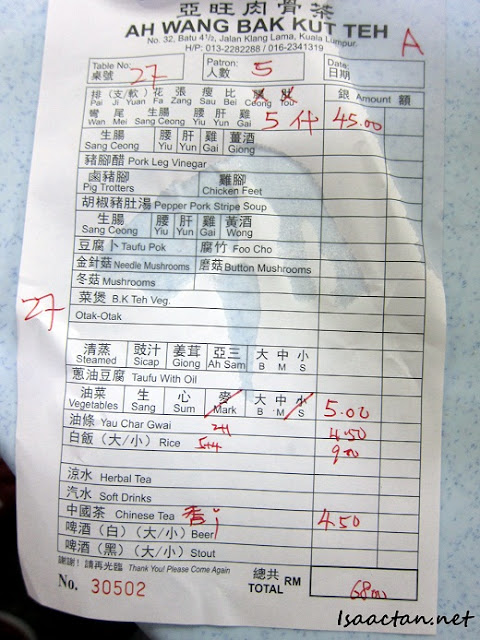 亞旺肉骨茶
AH WANG BAK KUT TEH
No. 32, Batu 4½, Jalan Klang Lama, Kuala Lumpur.
H/P: 013-2282288 / 016-2341319
A
Table No: 桌號 27 Patron: 人數 5 Date: 日期
排 (支/軟) 花 張 瘦 比 銀 Amount 額
Pai Ji Yuan Fa Zang Sau Bei Ceong Tou
彎 尾 生腸 腰 肝 雞 5 什 45.00
Wan Mei Sang Ceong Yiu Yun Gai
生腸 腰 肝 雞 薑酒
Sang Ceong Yiu Yun Gai Giong
豬腳醋 Pork Leg Vinegar
鹵豬腳 Pig Trotters 雞腳 Chicken Feet
胡椒豬肚湯 Pepper Pork Stripe Soup
生腸 腰 肝 雞 黃酒
Sang Ceong Yiu Yun Gai Wong
豆腐卜 Taufu Pok 腐竹 Foo Cho
金針菇 Needle Mushrooms 磨菇 Button Mushrooms
冬菇 Mushrooms
27 菜煲 B.K Teh Veg.
Otak-Otak
清蒸 豉汁 姜茸 亞三 大 中 小
Steamed Sicap Giong Ah Sam B M S
蔥油豆腐 Taufu With Oil
油菜 生 心 麥 大 中 小 5.00
Vegetables Sang Sum Mark B M S
油條 Yau Char Gwai 2+1 4.50
白飯 (大/小) Rice 5+4 9.00
涼水 Herbal Tea
汽水 Soft Drinks
中國茶 Chinese Tea 香 j 4.50
啤酒 (白) (大/小) Beer
啤酒 (黑) (大/小) Stout
謝謝! 請再光臨 Thank You! Please Come Again
No. 30502 總共 TOTAL RM 68.00
Isaactan.net